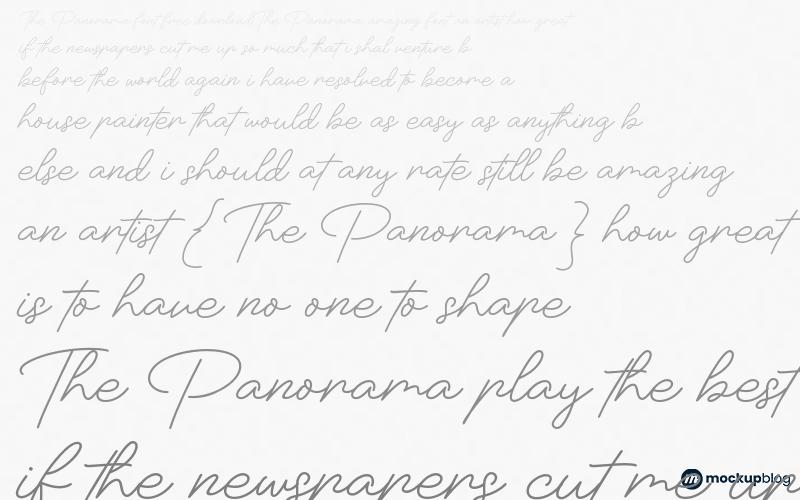 The Panorama font free download The Panorama amazing font an artist how great
if the newspapers cut me up so much that i shal venture b
before the world again i have resolved to become a
house painter that would be as easy as anything b
else and i should at any rate still be amazing
an artist { The Panorama } how great
is to have no one to shape
The Panorama play the best
if the newspapers cut me up
mockupblog